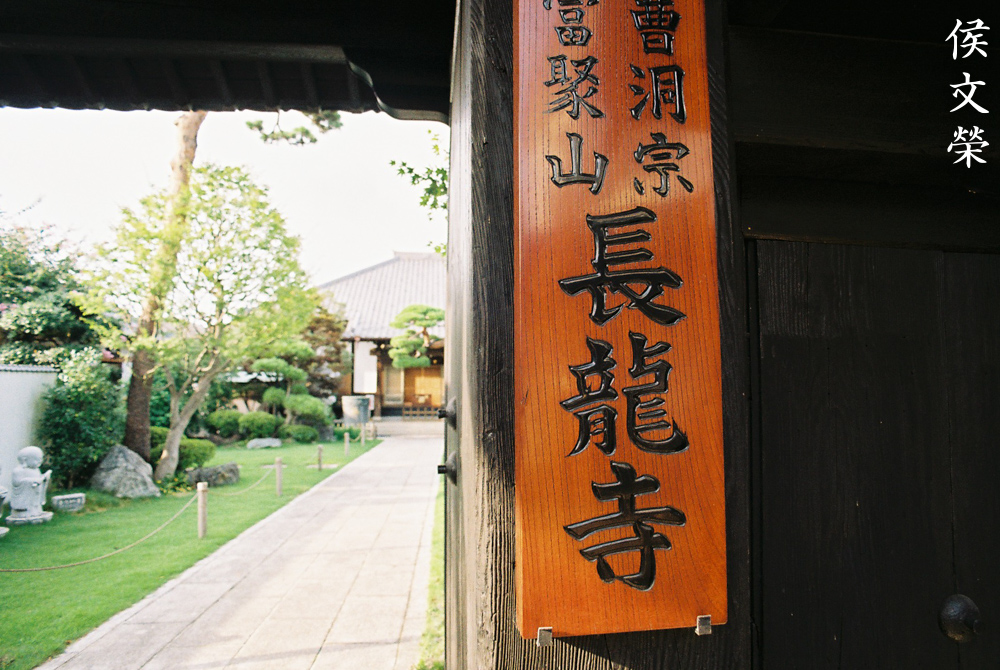 曹洞宗
富聚山
長龍寺
侯文榮